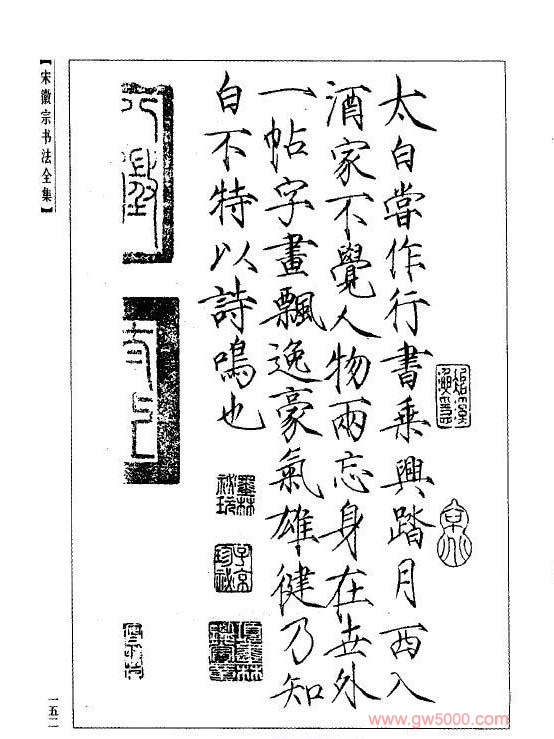 太白嘗作行書乘興踏月西入
酒家不覺人物兩忘身在世外
一帖字畫飄逸豪氣雄健乃知
白不特以詩鳴也
墨林
秘玩
子京
珍秘
【宋徽宗书法全集】
一五二
www.gw5000.com